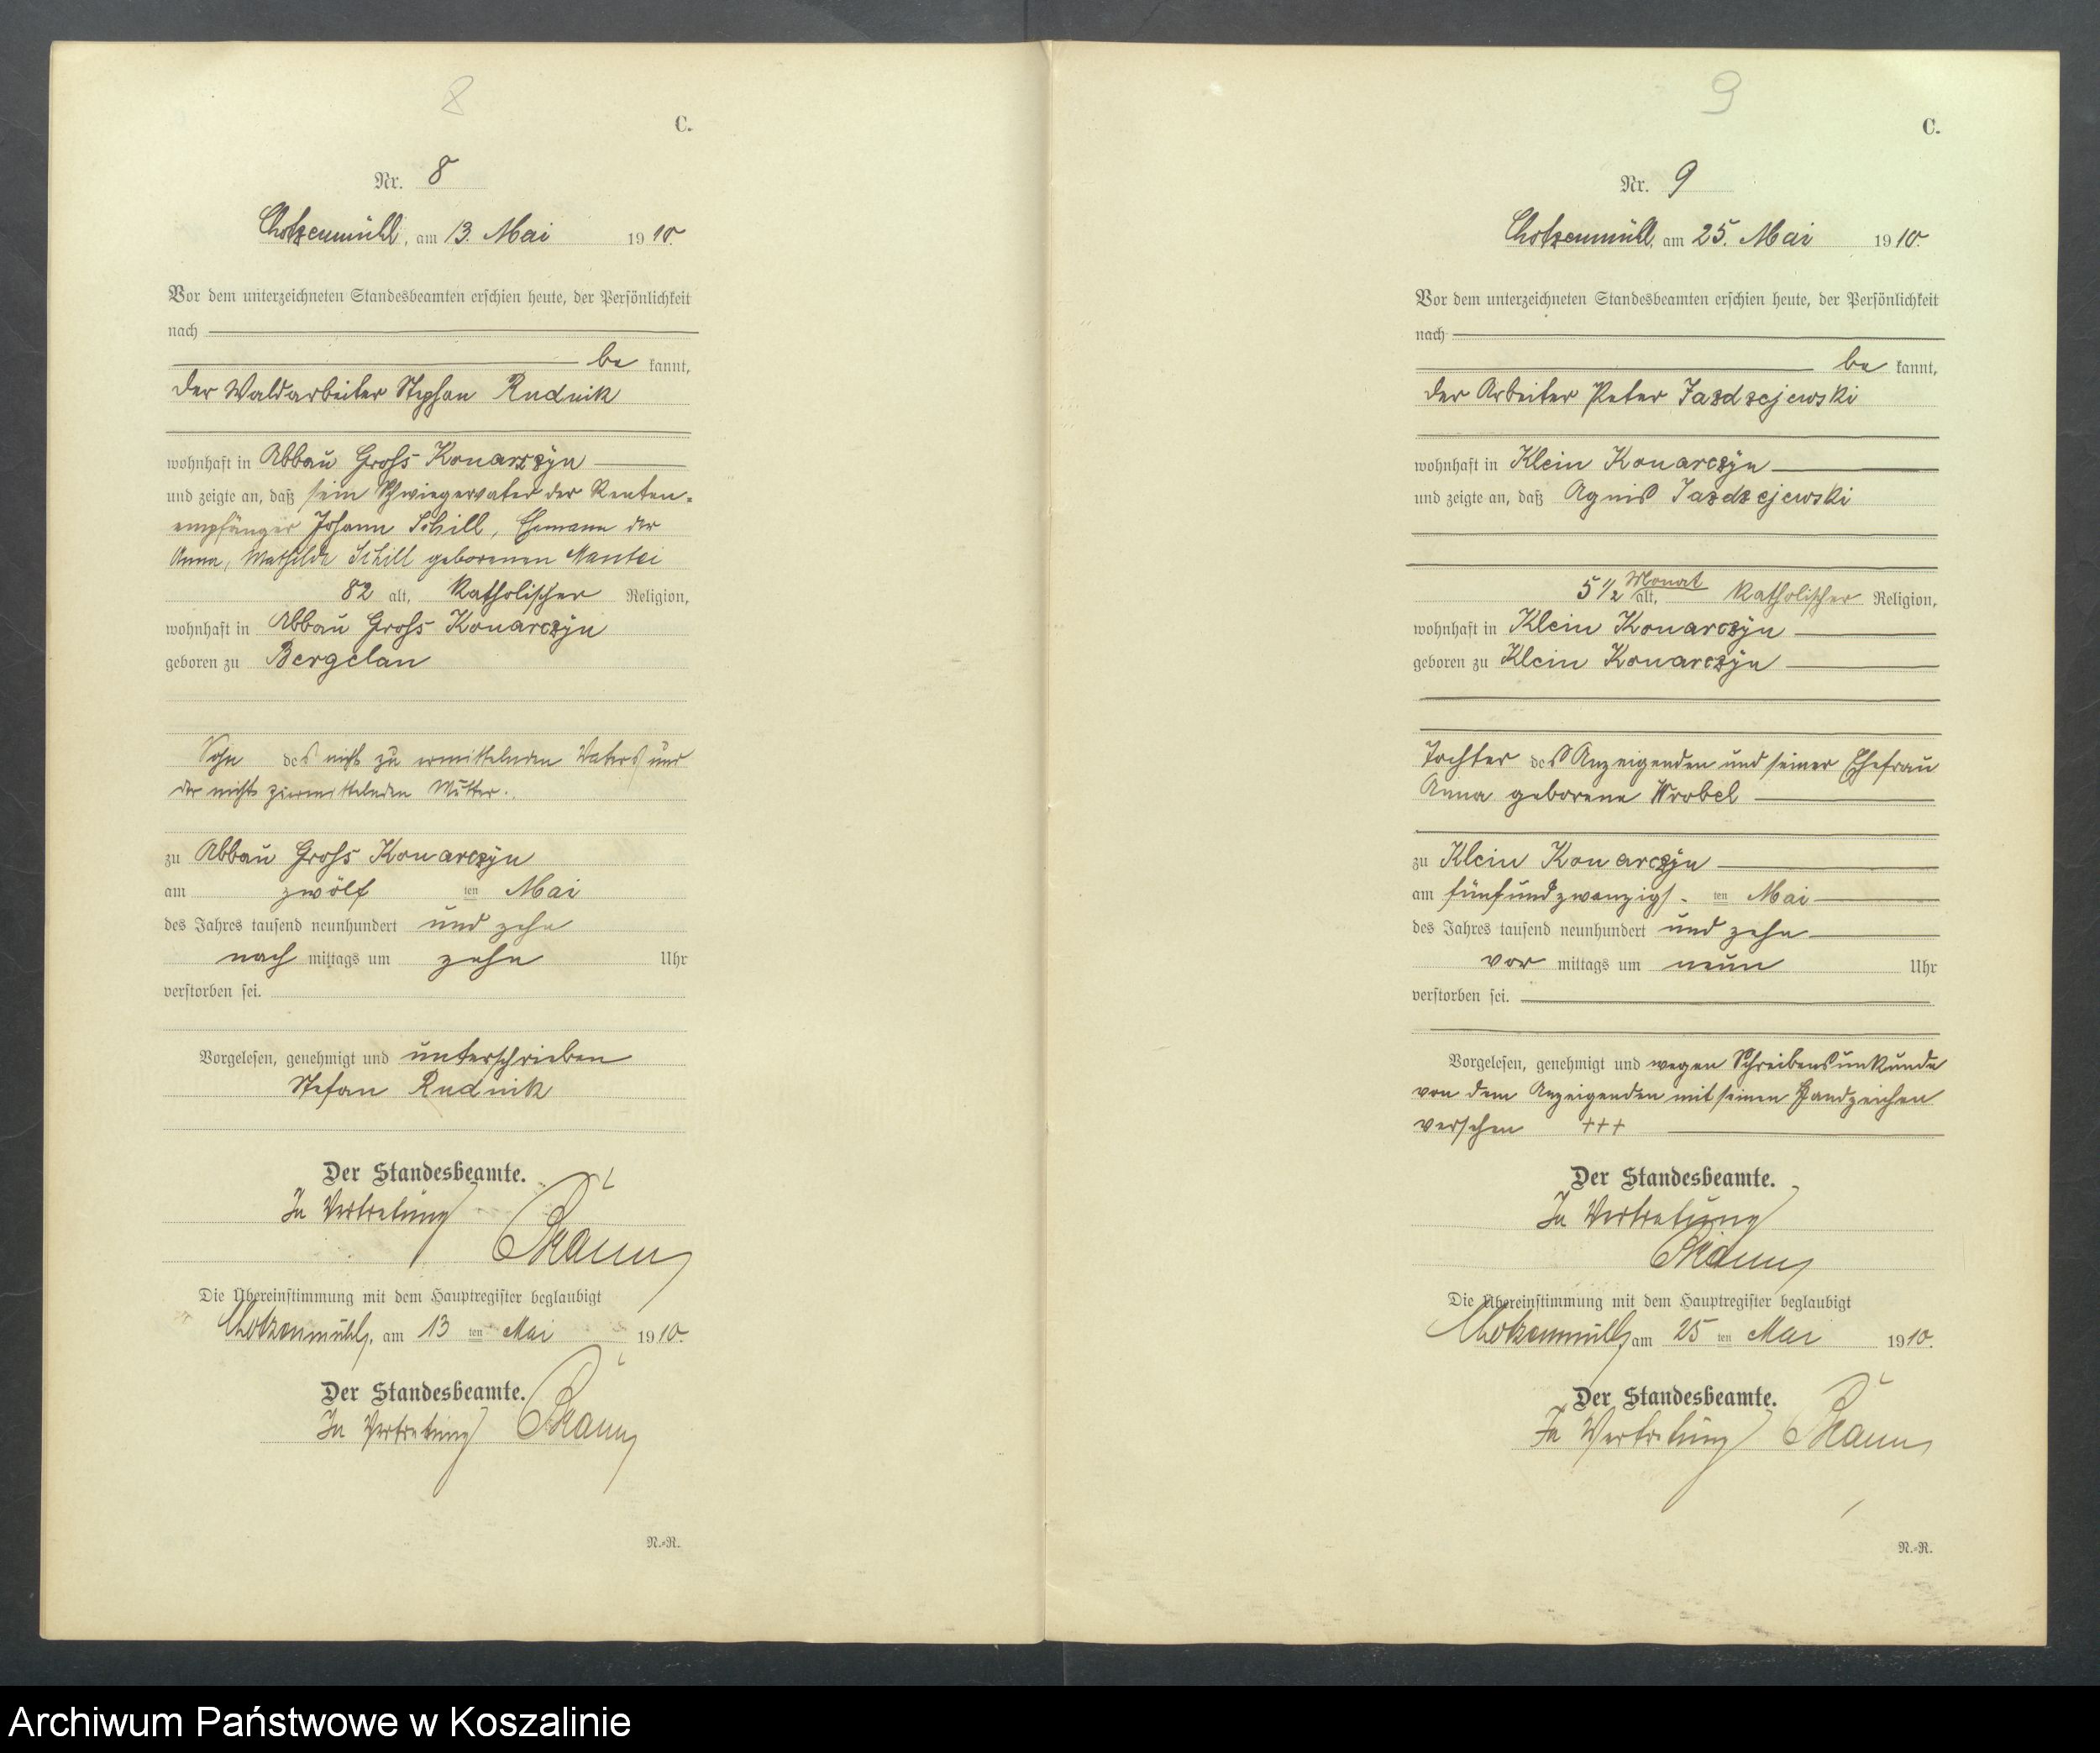 8
C.
Nr. 8
Chotzenmühl, am 13. Mai 1910.
Vor dem unterzeichneten Standesbeamten erschien heute, der Persönlichkeit
nach
be kannt,
der Waldarbeiter Stephan Rudnik
wohnhaft in Abbau Gross Konarszyn
und zeigte an, daß sein Schwiegervater der Renten-
empfänger Johann Schill, Ehemann der
Anna, Mathilde Schill geborenen Mantei
82 alt, katholischer Religion,
wohnhaft in Abbau Gross Konarczyn
geboren zu Bergelau
Sohn des nicht zu ermittelnden Vaters und
der nicht zu ermittelnden Mutter.
zu Abbau Gross Konarczyn
am zwölf ten Mai
des Jahres tausend neunhundert und zehn
nach mittags um zehn Uhr
verstorben sei.
Vorgelesen, genehmigt und unterschrieben
Stefan Rudnik
Der Standesbeamte.
In Vertretung
Die Übereinstimmung mit dem Hauptregister beglaubigt
Chotzenmühl, am 13 ten Mai 1910.
Der Standesbeamte.
In Vertretung
N.-R.
9
C.
Nr. 9
Chotzenmühl, am 25. Mai 1910.
Vor dem unterzeichneten Standesbeamten erschien heute, der Persönlichkeit
nach
be kannt,
der Arbeiter Peter Jazdzejewski
wohnhaft in Klein Konarczyn
und zeigte an, daß Agnes Jazdzejewski
5 1/2 Monat alt, katholischer Religion,
wohnhaft in Klein Konarczyn
geboren zu Klein Konarczyn
Tochter des Anzeigenden und seiner Ehefrau
Anna geborene Wrobel
zu Klein Konarczyn
am fünfundzwanzigs- ten Mai
des Jahres tausend neunhundert und zehn
vor mittags um neun Uhr
verstorben sei.
Vorgelesen, genehmigt und wegen Schreibensunkunde
von dem Anzeigenden mit seinen Handzeichen
versehen +++
Der Standesbeamte.
In Vertretung
Die Übereinstimmung mit dem Hauptregister beglaubigt
Chotzenmühl, am 25 ten Mai 1910.
Der Standesbeamte.
In Vertretung
N.-R.
Archiwum Państwowe w Koszalinie